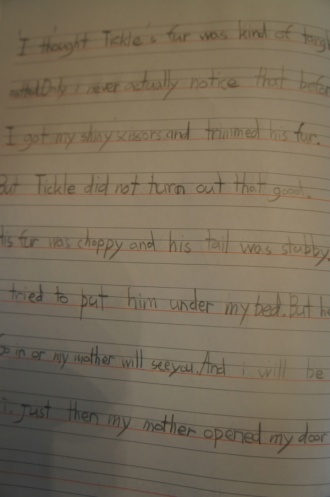 I thought Tickle's fur was kind of
Only i never actually notice that
I got my shiny scissors and trimmed his fur.
But Tickle did not turn out that good.
his fur was choppy and his tail was stubby.
tried to put him under my bed. But
in or my mother will see you. And i will be
i. Just then my mother opened my door